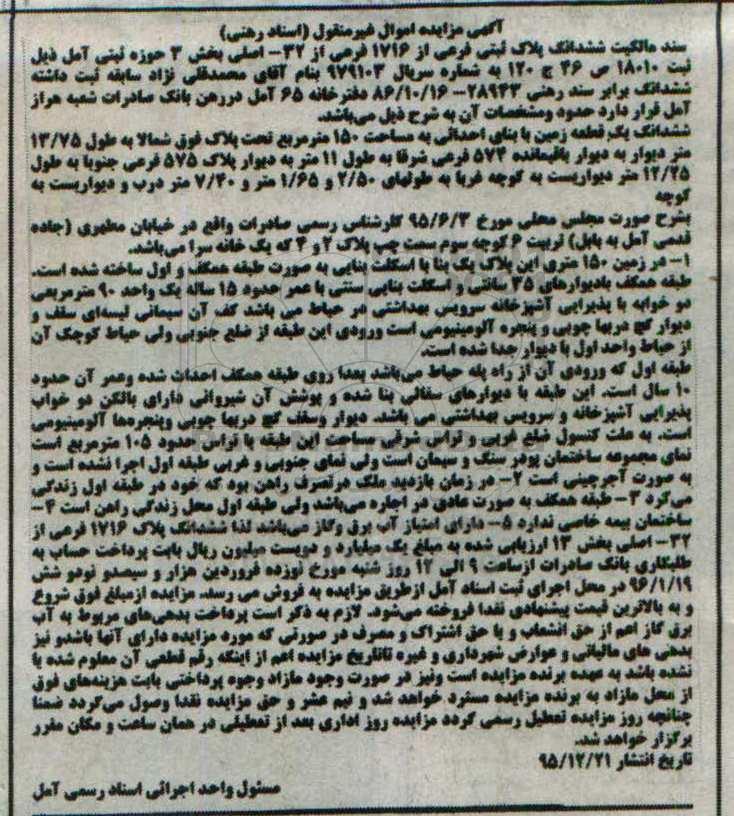 آگهی مزایده اموال غیرمنقول (اسناد رهنی)
سند مالکیت ششدانگ پلاک ثبتی فرعی از ۱۷۱۶ فرعی از ۳۲- اصلی بخش ۳ حوزه ثبتی آمل ذیل
ثبت ۱۸۰۱۰ ص ۴۶ ج ۱۲۰ به شماره سریال ۹۷۹۱۰۳ بنام آقای محمدقلی نژاد سابقه ثبت داشته
ششدانگ برابر سند رهنی ۲۸۹۴۳- ۸۶/۱۰/۱۶ دفترخانه ۶۵ آمل دررهن بانک صادرات شعبه هراز
آمل قرار دارد حدود ومشخصات آن به شرح ذیل می‌باشد.
ششدانگ یک قطعه زمین با بنای احداثی به مساحت ۱۵۰ مترمربع تحت پلاک فوق شمالا به طول ۱۳/۷۵
متر دیوار به دیوار باقیمانده ۵۷۴ فرعی شرقا به طول ۱۱ متر به دیوار پلاک ۵۷۵ فرعی جنوبا به طول
۱۲/۲۵ متر دیواریست به کوچه غربا به طولهای ۲/۵۰ و ۱/۶۵ متر و ۷/۴۰ متر درب و دیواریست به
کوچه
بشرح صورت مجلس محلی مورخ ۹۵/۶/۳ کارشناس رسمی صادرات واقع در خیابان مطهری (جاده
قدمی آمل به بابل) تربیت ۶ کوچه سوم سمت چپ پلاک ۲ و ۴ که یک خانه سرا می‌باشد.
۱- در زمین ۱۵۰ متری این پلاک یک بنا با اسکلت بنایی به صورت طبقه همکف و اول ساخته شده است.
طبقه همکف بادیوارهای ۳۵ سانتی و اسکلت بنایی سنتی با عمر حدود ۱۵ ساله یک واحد ۹۰ مترمربعی
دو خوابه با پذیرایی آشپزخانه سرویس بهداشتی در حیاط می باشد کف آن سیمانی لیسه‌ای سقف و
دیوار گچ دربها چوبی و پنجره آلومینیومی است ورودی این طبقه از ضلع جنوبی ولی حیاط کوچک آن
از حیاط واحد اول با دیوار جدا شده است.
طبقه اول که ورودی آن از راه پله حیاط می‌باشد بعدا روی طبقه همکف احداث شده وعمر آن حدود
۱۰ سال است. این طبقه با دیوارهای سفالی بنا شده و پوشش آن شیروانی دارای بالکن دو خواب
پذیرایی آشپزخانه و سرویس بهداشتی می باشد. دیوار وسقف گچ دربها چوبی وپنجره‌ها آلومینیومی
است. به علت کنسول ضلع غربی و تراس شرقی مساحت این طبقه با تراس حدود ۱۰۵ مترمربع است
نمای مجموعه ساختمان پودر سنگ و سیمان است ولی نمای جنوبی و غربی طبقه اول اجرا نشده است و
به صورت آجرچینی است ۲- در زمان بازدید ملک درتصرف راهن بود که خود در طبقه اول زندگی
می‌کرد ۳- طبقه همکف به صورت عادی در اجاره می‌باشد ولی طبقه اول محل زندگی راهن است ۴-
ساختمان بیمه خاصی ندارد ۵- دارای امتیاز آب برق وگاز می‌باشد لذا ششدانگ پلاک ۱۷۱۶ فرعی از
۳۲- اصلی بخش ۱۳ ارزیابی شده به مبلغ یک میلیارد و دویست میلیون ریال بابت پرداخت حساب به
طلبکاری بانک صادرات ازساعت ۹ الی ۱۲ روز شنبه مورخ نوزده فروردین هزار و سیصدو نودو شش
۹۶/۱/۱۹ در محل اجرای ثبت اسناد آمل ازطریق مزایده به فروش می رسد. مزایده ازمبلغ فوق شروع
و به بالاترین قیمت پیشنهادی نقدا فروخته می‌شود. لازم به ذکر است پرداخت بدهی‌های مربوط به آب
برق گاز اعم از حق انشعاب و یا حق اشتراک و مصرف در صورتی که مورد مزایده دارای آنها باشدو نیز
بدهی های مالیاتی و عوارض شهرداری و غیره تاتاریخ مزایده اعم از اینکه رقم قطعی آن معلوم شده یا
نشده باشد به عهده برنده مزایده است ونیز در صورت وجود مازاد وجوه پرداختی بابت هزینه‌های فوق
از محل مازاد به برنده مزایده مسترد خواهد شد و نیم عشر و حق مزایده نقدا وصول می‌گردد ضمنا
چنانچه روز مزایده تعطیل رسمی گردد مزایده روز اداری بعد از تعطیلی در همان ساعت و مکان مقرر
برگزار خواهد شد.
تاریخ انتشار ۹۵/۱۲/۲۱
مسئول واحد اجرائی اسناد رسمی آمل